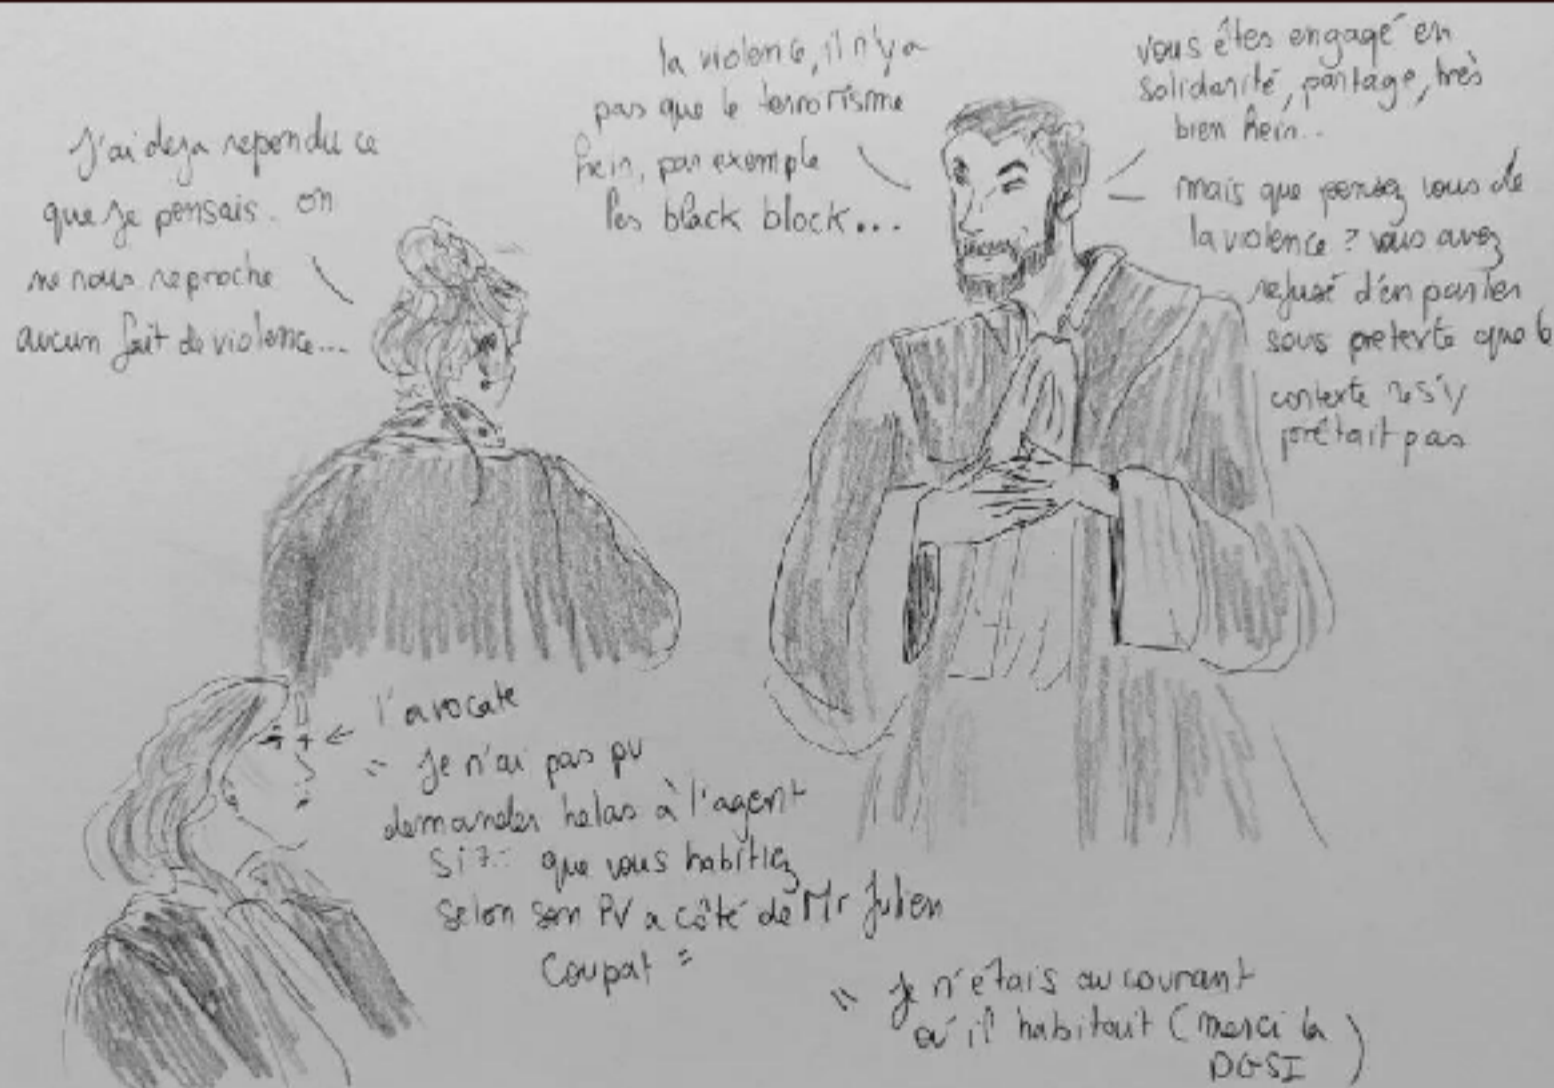 J'ai deja repondu ce
que je pensais. on
ne nous reproche
aucun fait de violence...
la violence, il n'y a
pas que le terrorisme
hein, par exemple
les black block...
vous êtes engagé en
solidarité, partage, très
bien hein..
mais que pensez vous de
la violence ? vous avez
refusé d'en parler
sous pretexte que le
contexte ne s'y
prêtait pas
l'avocate
" Je n'ai pas pu
demander helas à l'agent
que vous habitiez
selon son PV a côté de Mr Julien
Coupat "
" Je n'étais au courant
où il habitait (merci la
DGSI )